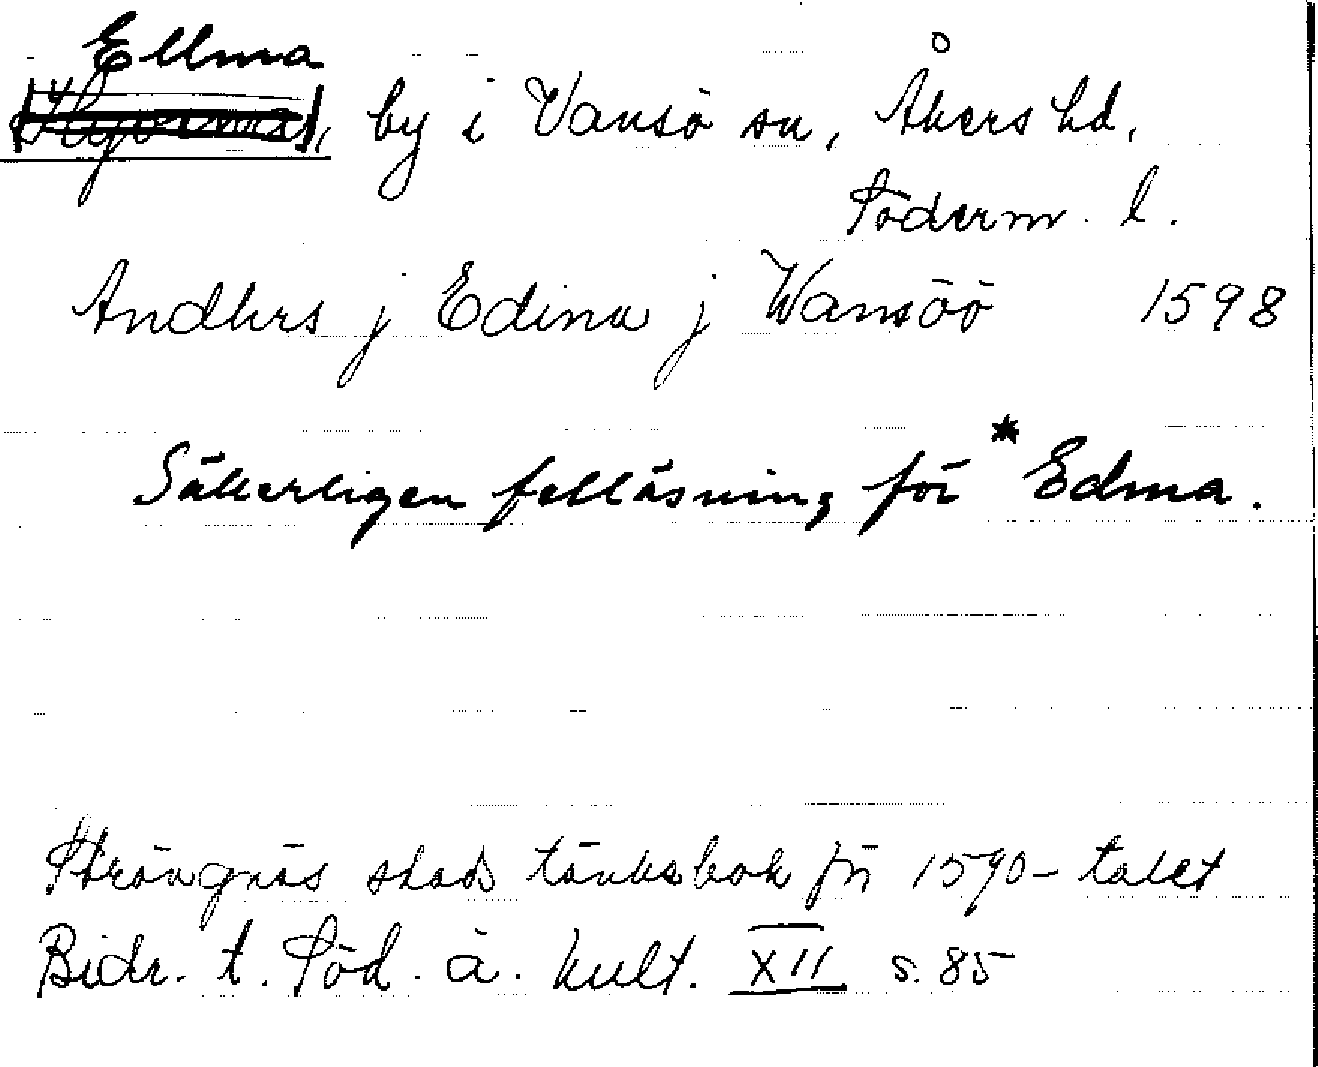 Ellma
by i Vansö sn, Åkers hd,
Söderm. l.
Andhers j Edina j Wansöö 1598
Säkerligen felläsning för *Edma.
Strängnäs stads tänkebok för 1590-talet
Bidr. t. Söd. ä. kult. XII s. 85